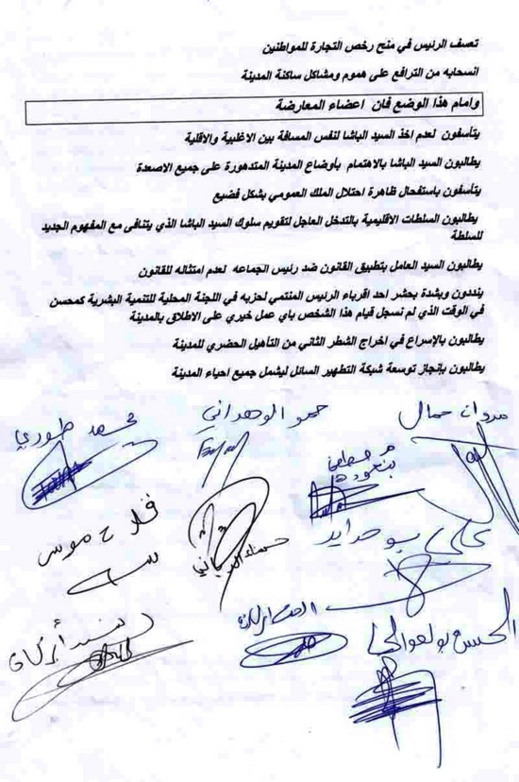 تعسف الرئيس في منح رخص التجارة للمواطنين
انسحابه من الترافع على هموم ومشاكل ساكنة المدينة
وامام هذا الوضع فان اعضاء المعارضة
يتأسفون لعدم اخذ السيد الباشا لنفس المسافة بين الاغلبية والاقلية
يطالبون السيد الباشا بالاهتمام بأوضاع المدينة المتدهورة على جميع الاصعدة
يتأسفون باستفحال ظاهرة احتلال الملك العمومي بشكل فضيع
يطالبون السلطات الاقليمية بالتدخل العاجل لتقويم سلوك السيد الباشا الذي يتنافى مع المفهوم الجديد
للسلطة
يطالبون السيد العامل بتطبيق القانون ضد رئيس الجماعه لعدم امتثاله للقانون
ينددون وبشدة بحشر احد اقرباء الرئيس المنتمي لحزبه في اللجنة المحلية للتنمية البشرية كمحسن
في الوقت الذي لم نسجل قيام هذا الشخص باي عمل خيري على الاطلاق بالمدينة
يطالبون بالإسراع في اخراج الشطر الثاني من التأهيل الحضري للمدينة
يطالبون بإنجاز توسعة شبكة التطهير السائل ليشمل جميع احياء المدينة
مروان حمال
حمو الوهداني
محمد طوري
مصطفى
بنعودة
علي بوحدايد
فلاح موسى
الحسن بولعوالي